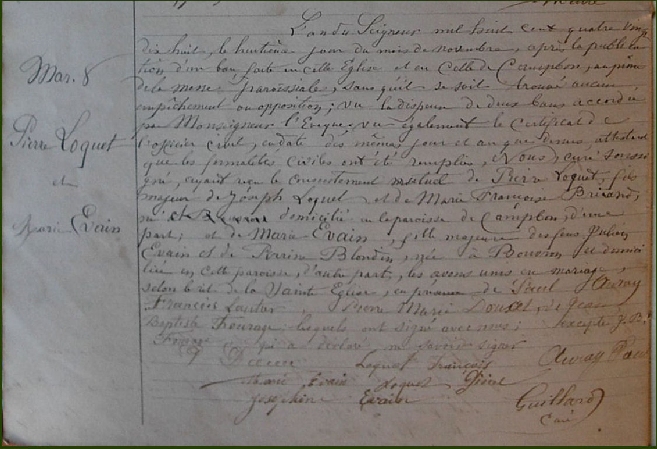 Mar. 8
Pierre Loquet
et
Marie Evain
L'an du Seigneur mil huit cent quatre vingt
dix huit, le huitième jour du mois de novembre, après la publica-
tion d'un ban faite en cette Eglise et en celle de Campbon, au prône
de la messe paroissiale, sans qu'il se soit trouvé aucun
empêchement ou opposition; vu la dispense de deux bans accordée
par Monseigneur l'Evêque, vu également le certificat de
l'officier civil, en date des mêmes jour et an que dessus, attestant
que les formalités civiles ont été remplies, Nous, curé sous-
igné, ayant reçu le consentement mutuel de Pierre Loquet, fils
majeur de Joseph Loquet et de Marie Françoise Briand,
né et domicilié en la paroisse de Campbon, d'une
part; et de Marie Evain, fille majeure des feus Julien
Evain et de Perrine Blondin, née à Bouvron et domici-
liée en cette paroisse, d'autre part, les avons unis en mariage,
selon le rit de la Sainte Eglise, en présence de Auray
François Loquet, Pierre Marie et Jean
Baptiste lesquels ont signé avec nous; excepté J. B.
qui a déclaré ne savoir signer
Loquet François Auray Paul
Marie Evain Loquet Pierre
Joséphine Evain Guillard
Curé